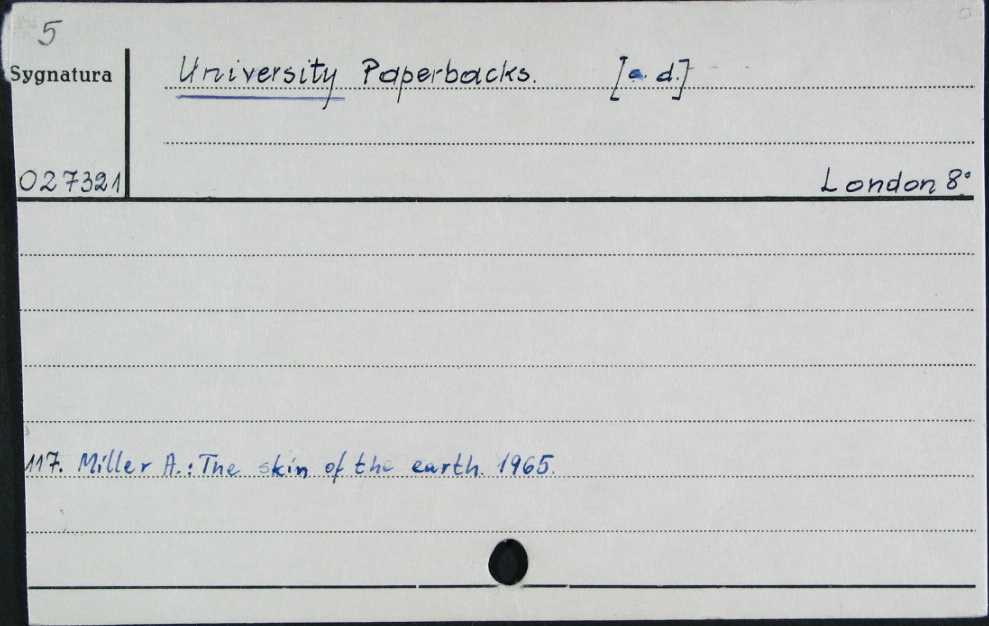 5
Sygnatura
University Paperbacks. [a. d.]
027321
London 8°
117. Miller A.: The skin of the earth. 1965.